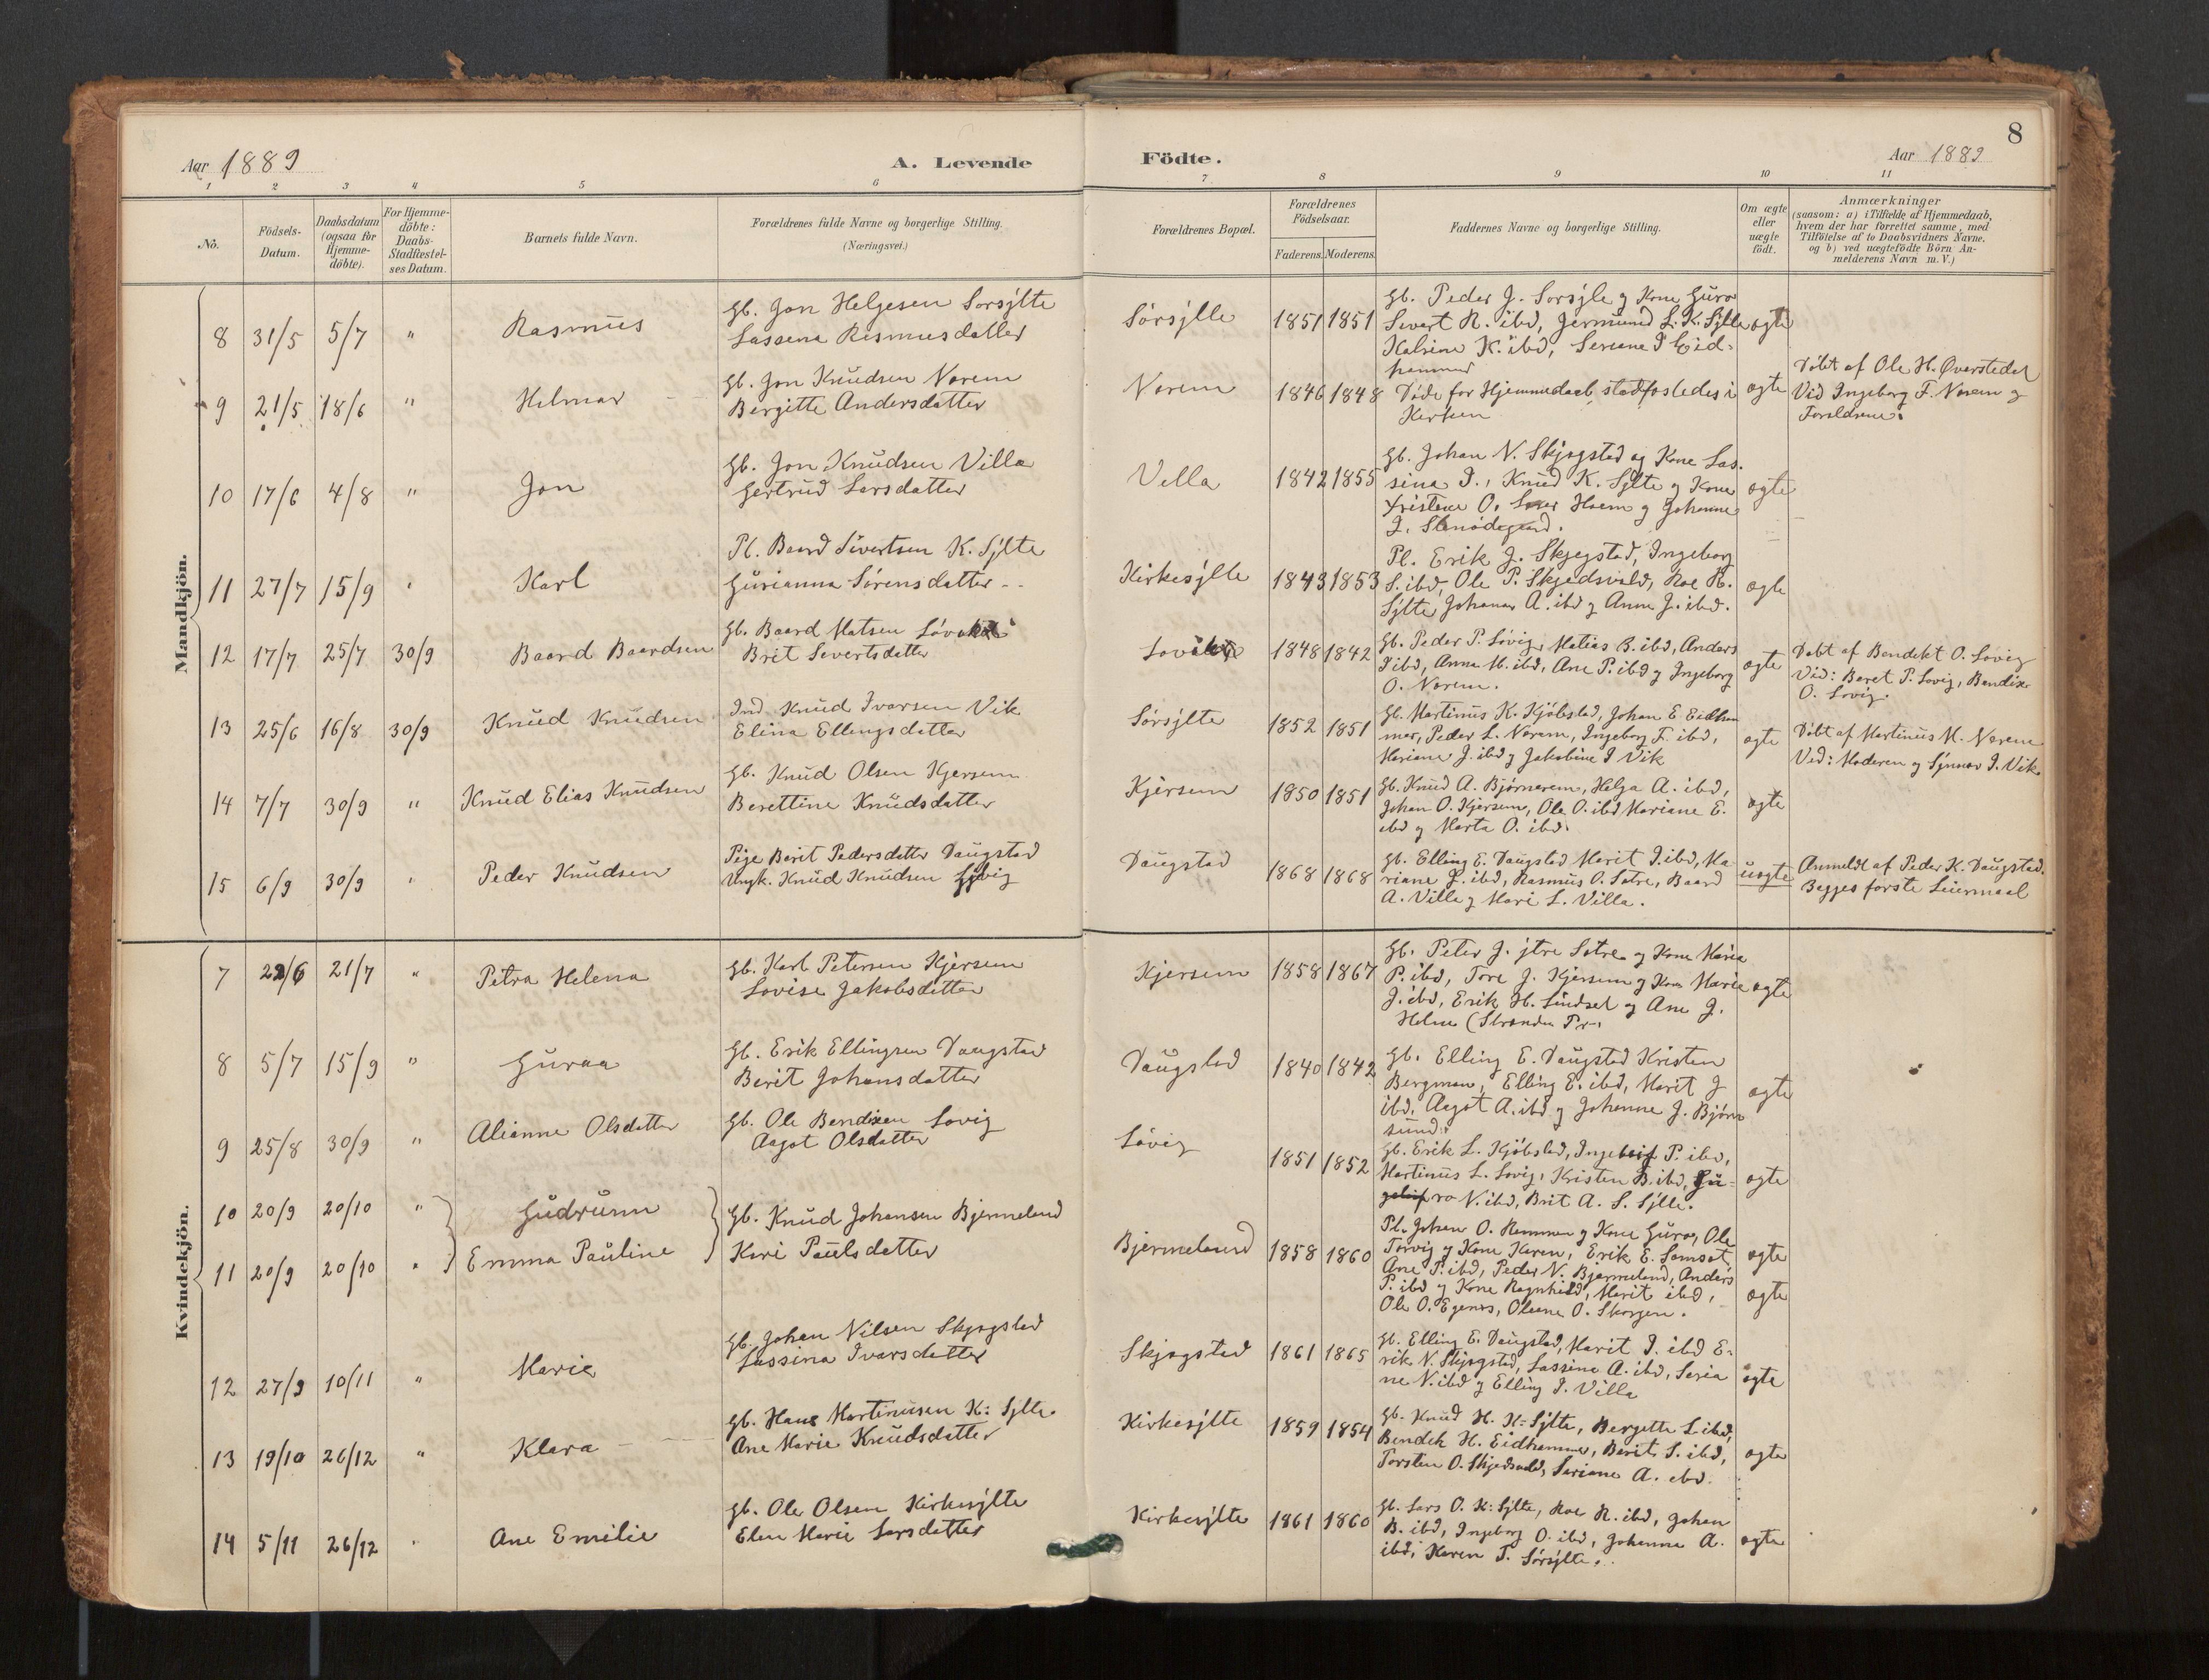 8
Aar 1889 A. Levende Födte. Aar 1889
1 2 3 4 5 6 7 8 9 10 11
No.
Födsels-
Datum.
Daabsdatum
(ogsaa för
Hjemme-
döbte).
For Hjemme-
döbte:
Daabs-
Stadfæstel-
ses Datum.
Barnets fulde Navn.
Forældrenes fulde Navne og borgerlige Stilling.
(Næringsvei.)
Forældrenes Bopæl.
Forældrenes
Födselsaar.
Faderens. Moderens.
Faddernes Navne og borgerlige Stilling.
Om ægte
eller
uægte
födt.
Anmærkninger
(saasom: a) i Tilfælde af Hjemmedaab,
hvem der har forrettet samme, med
Tilföielse af to Daabsvidners Navne,
og b) ved uægtefödte Börn An-
melderens Navn m. V.)
Mandkjön.
8 31/5 5/7 " Rasmus
Gb. Jon Helgesen Sorsylte
Lassena Rasmusdatter
Sörsylte 1851 1851
Gb. Peder J. Sorsyle og Kone Guro
Sivert R. ibd, Jermund L. K. Sylte
Katrine K. ibd, Seriane I Eid-
hammer
ægte
9 21/5 18/6 " Helmar
Gb. Jon Knudsen Norem
Bergitte Andersdatter
Norem 1846 1848
Døde før Hjemmedaab stadfæstedes i
Kirken
ægte
Döbt af Ole H. Øverstedal
Vid Ingeborg F. Norem og
Foreldrene.
10 17/6 4/8 " Jon
Gb. Jon Knudsen Villa
Gertrud Larsdatter
Vella 1842 1855
Gb. Johan N. Skjogstad og Kone Las-
sina I., Knud K. Sylte og Kone
Kristene O. Hoem og Johanne
ægte
11 27/7 15/9 " Karl
Pl. Baard Sivertsen K. Sylte
Gurianna Sörensdatter
Kirkesylte 1843 1853
Pl. Erik J. Skjegstad, Ingeborg
S. ibd, Ole P. Skjedsvold, Roe R.
Sylte, Johanes A. ibd og Anne J. ibd.
ægte
12 17/7 25/7 30/9 Baard Baardsen
Gb. Baard Matsen
Brit Severtsdatter
1848 1842
Gb. Peder P. Lövig, Matias B. ibd, Anders
I ibd, Anna M. ibd, Ane P. ibd og Ingeborg
O. Norem.
ægte
Døbt af Bendekt O. Lovig
Vid: Beret P. Lovig, Bendix
O. Lovig.
13 25/6 16/8 30/9 Knud Knudsen
Ind. Knud Ivarsen Vik
Elina Ellingsdatter
Sörsylte 1852 1851
Gb. Martinus K. Kjöbstad, Johan E Eidham
mer, Peder L. Norem, Ingeborg F. ibd,
Mariane J. ibd og Jakobine I Vik
ægte
Döbt af Martinus M. Norem
Vid: Moderen og Synnøv I. Vik.
14 7/7 30/9 " Knud Elias Knudsen
Gb. Knud Olsen Kjersem
Berettine Knudsdatter
Kjersem 1850 1851
Gb. Knud A. Bjørnerem, Helga A. ibd,
Johan O. Kjersem, Ole O. ibd Mariane E.
ibd og Marta O. ibd.
ægte
15 6/9 30/9 " Peder Knudsen
Pige Berit Pedersdatter Daugstad
Ungk. Knud Knudsen
Daugstad 1868 1868
Gb. Elling E. Daugstad Marit I. ibd, Ma-
riane J. ibd, Rasmus O. Sotre, Baard
A. Villa og Mari L. Villa.
uægte
Anmeldt af Peder K. Daugstad.
Begges første Leiermaal
Kvindekjön.
7 22/6 21/7 " Petra Helena
Gb. Karl Petersen Kjersem
Lovise Jakobsdatter
Kjersem 1858 1867
Gb. Peter J. ytre Sotre og Kone Maria
P. ibd, Tore J. Kjersem og Kone Marie
J. ibd, Erik H. Lindset og Ane J.
Helme (Stranden Pr.
ægte
8 5/7 15/9 " Guraa
Gb. Erik Ellingsen Daugstad
Berit Johansdatter
Daugstad 1840 1842
Gb. Elling E. Daugstad Kristen
Bergman, Elling E. ibd, Marit J
ibd, Aagot A. ibd og Johanne J. Bjørn
sund.
ægte
9 25/8 30/9 " Alianne Olsdatter
Gb. Ole Bendixen Lovig
Aagot Olsdatter
Lövig 1851 1852
Gb. Erik L. Kjöbstad, P. ibd,
Martinus L. Lovig, Kristen B. ibd, Gu-
ro N. ibd, Brit A. S. Sylte.
ægte
10 20/9 20/10 " Gudrunn
11 20/9 20/10 " Emma Pauline
Gb. Knud Johansen Bjermeland
Kari Paulsdatter
Bjermeland 1858 1860
Pl. Johan O. Rammen og Kone Guro, Ole
Torvig og Kone Karen, Erik E. Samset
Ane P. ibd, Peder N. Bjermeland, Anders
P. ibd og Kone Ragnhild, Marit ibd,
Ole O. Egenes, Oleane O. Skorgen.
ægte
ægte
12 27/9 10/11 " Marie
Gb. Johan Nilsen Skjogstad
Lassina Ivarsdatter
Skjogstad 1861 1865
Gb. Elling E. Daugstad, Marit I. ibd E-
rik N. Skjogstad, Lassine A. ibd, Seria
ne N. ibd og Elling I. Villa
ægte
13 19/10 26/12 " Klara
Gb. Hans Martinusen K: Sylte
Ane Marie Knudsdatter
Kirkesylte 1859 1854
Gb. Knud H. K: Sylte, Bergette L. ibd,
Bendek H. Eidhammer, Berit S. ibd,
Torsten O. Skjedsvold, Seriane A. ibd.
ægte
14 5/11 26/12 " Ane Emilie
Gb. Ole Olsen Kirkesylte
Elen Marie Larsdatter
Kirkesylte 1861 1860
Gb. Lars O. K: Sylte, Roe R. ibd, Johan
B. ibd, Ingeborg O. ibd, Johanna A.
ibd, Karen T. Sörsylte.
ægte